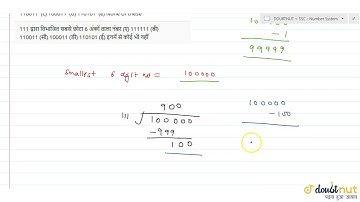 110011 (C) 100011 (D) 110101 (E) None of these
111 द्वारा विभाजित सबसे छोटा 6 अंकों वाला नंबर (ए) 111111 (बी)
110011 (सी) 100011 (डी) 110101 (ई) इनमें से कोई भी नहीं
- 1
99999
Smallest 6 digit no = 100000
900
111 100000
-999
100
100000
-100
doubtnut